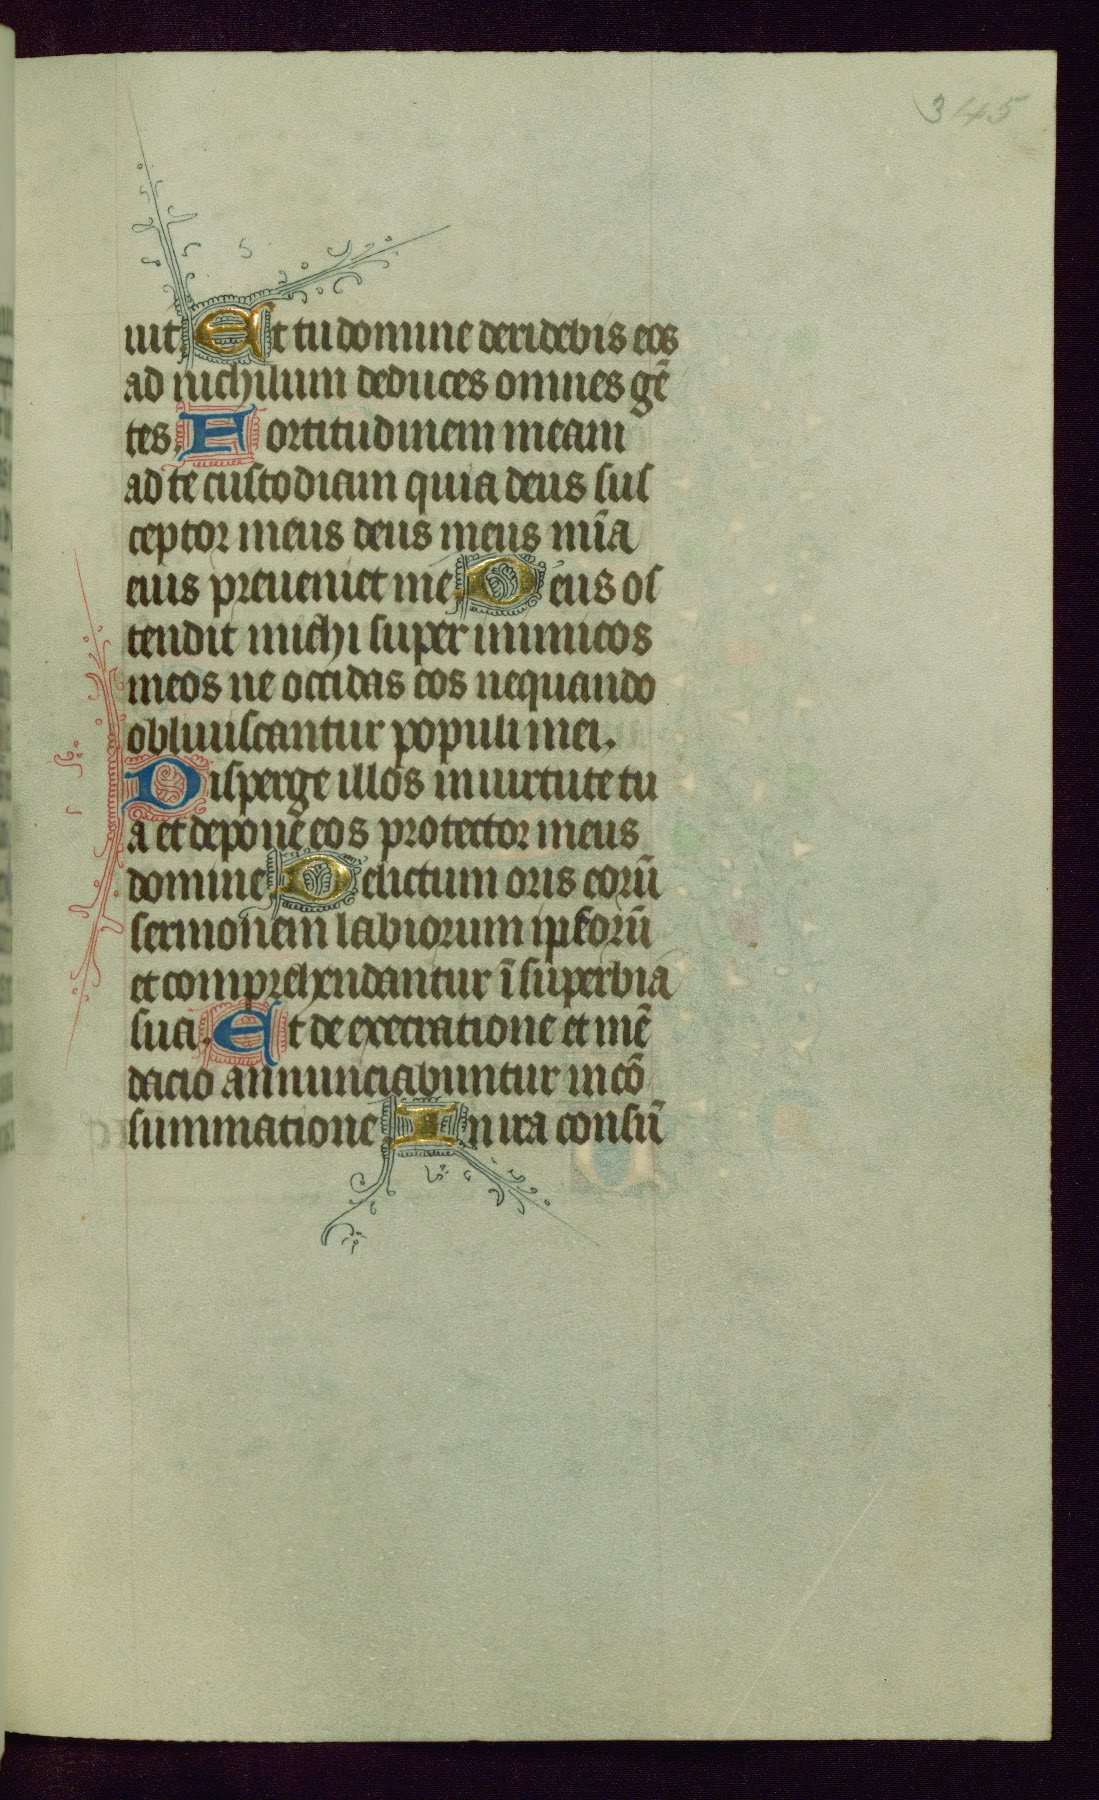 345
uit. Et tu domine deridebis eos
ad nichilum deduces omnes gē
tes. Fortitudinem meam
ad te custodiam quia deus sus
ceptor meus deus meus mīa
eius preueniet me. Deus os
tendit michi super inimicos
meos ne occidas eos nequando
obliuiscantur populi mei.
Disperge illos in uirtute tu
a et depone eos protector meus
domine. Delictum oris eorū
sermonem labiorum ipsorū
et comprehendantur ī superbia
sua. Et de execratione et mē
dacio annunciabuntur in cō
summatione. In ira consū